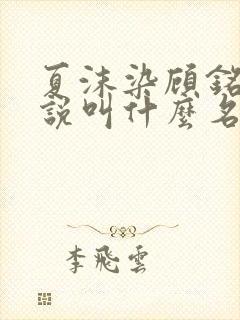 夏沫染顾銘
說叫什麼名
李飛雲